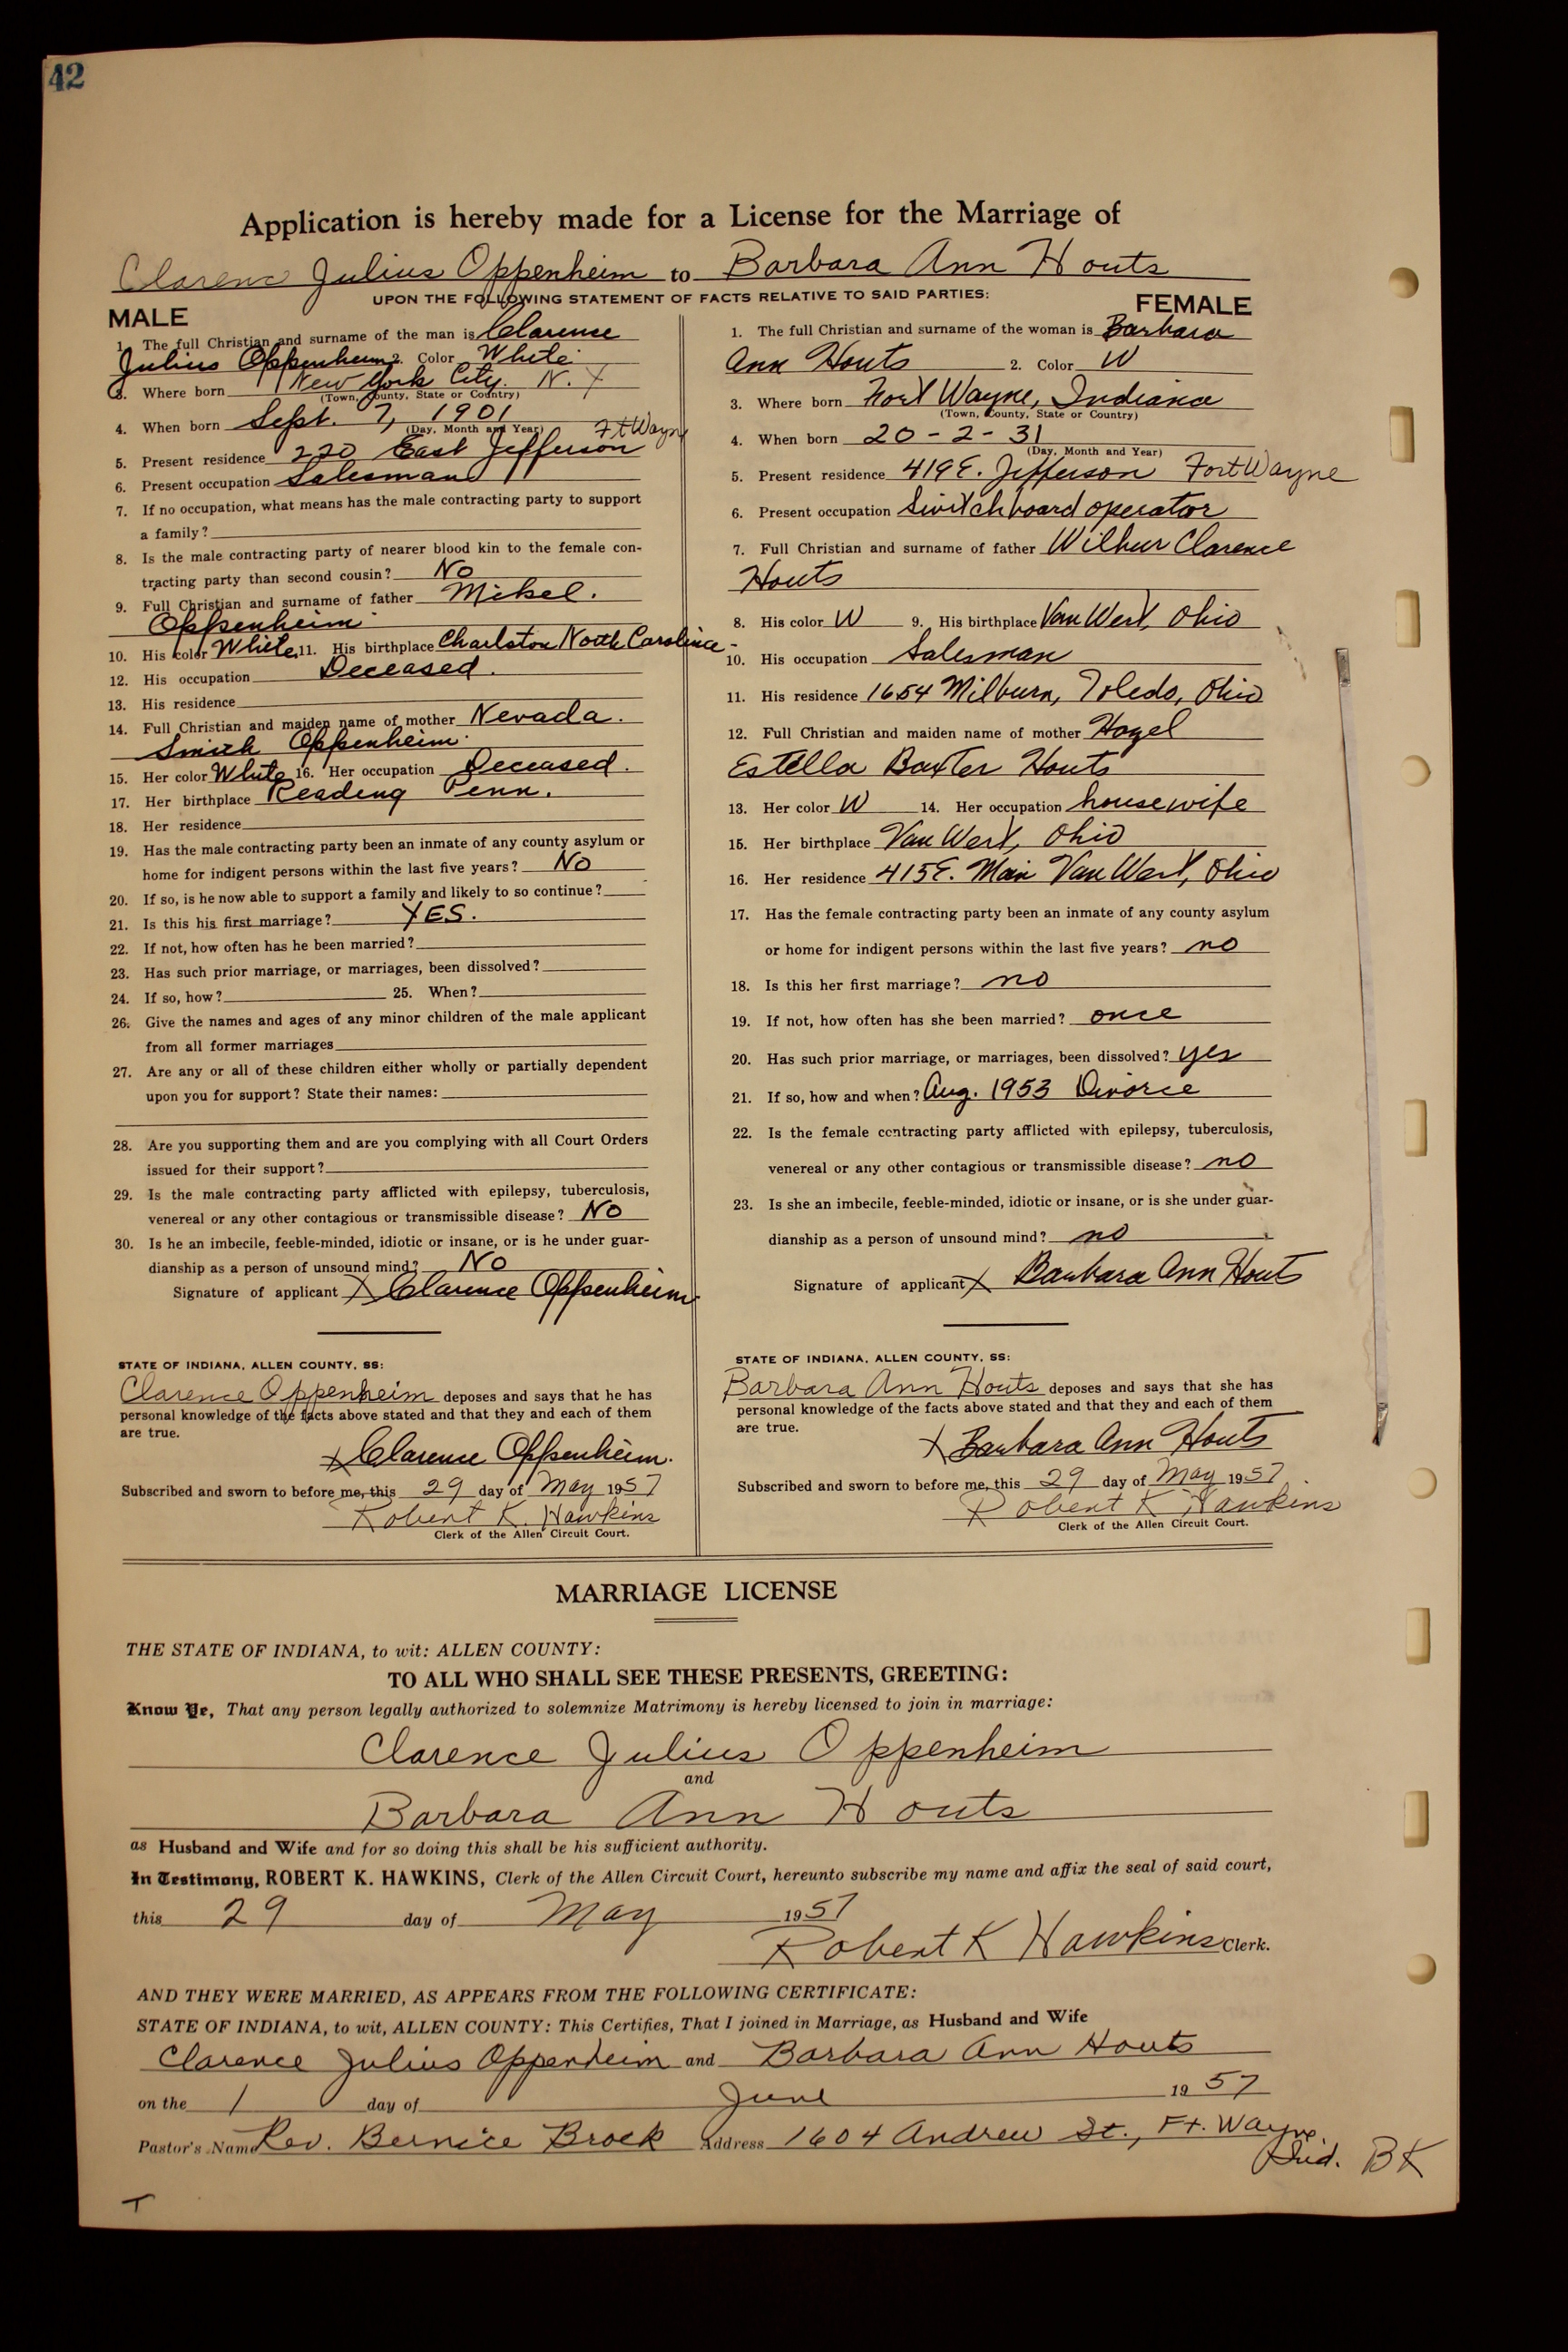 42
Application is hereby made for a License for the Marriage of
Clarence Julius Oppenheim to Barbara Ann Houts
UPON THE FOLLOWING STATEMENT OF FACTS RELATIVE TO SAID PARTIES:
MALE
1. The full Christian and surname of the man is Clarence
Julius Oppenheim 2. Color White
3. Where born New York City. N.Y
(Town, County, State or Country)
4. When born Sept. 7, 1901
(Day, Month and Year) Ft Wayne
5. Present residence 220 East Jefferson
6. Present occupation Salesman
7. If no occupation, what means has the male contracting party to support
a family?
8. Is the male contracting party of nearer blood kin to the female con-
tracting party than second cousin? No
9. Full Christian and surname of father Mikel.
Oppenheim
10. His color White 11. His birthplace Charlston North Carolina
12. His occupation Deceased.
13. His residence
14. Full Christian and maiden name of mother Nevada.
Smith Oppenheim.
15. Her color White 16. Her occupation Deceased.
17. Her birthplace Reading Penn.
18. Her residence
19. Has the male contracting party been an inmate of any county asylum or
home for indigent persons within the last five years? No
20. If so, is he now able to support a family and likely to so continue?
21. Is this his first marriage? YES.
22. If not, how often has he been married?
23. Has such prior marriage, or marriages, been dissolved?
24. If so, how? 25. When?
26. Give the names and ages of any minor children of the male applicant
from all former marriages
27. Are any or all of these children either wholly or partially dependent
upon you for support? State their names:
28. Are you supporting them and are you complying with all Court Orders
issued for their support?
29. Is the male contracting party afflicted with epilepsy, tuberculosis,
venereal or any other contagious or transmissible disease? No
30. Is he an imbecile, feeble-minded, idiotic or insane, or is he under guar-
dianship as a person of unsound mind? No
Signature of applicant X Clarence Oppenheim
STATE OF INDIANA, ALLEN COUNTY, SS:
Clarence Oppenheim deposes and says that he has
personal knowledge of the facts above stated and that they and each of them
are true.
X Clarence Oppenheim.
Subscribed and sworn to before me, this 29 day of May 1957
Robert K. Hawkins
Clerk of the Allen Circuit Court.
FEMALE
1. The full Christian and surname of the woman is Barbara
Ann Houts 2. Color W
3. Where born Fort Wayne, Indiana
(Town, County, State or Country)
4. When born 20-2-31
(Day, Month and Year)
5. Present residence 419 E. Jefferson Fort Wayne
6. Present occupation Switchboard operator
7. Full Christian and surname of father Wilbur Clarence
Houts
8. His color W 9. His birthplace Van Wert, Ohio
10. His occupation Salesman
11. His residence 1654 Milburn, Toledo, Ohio
12. Full Christian and maiden name of mother Hazel
Estella Baxter Houts
13. Her color W 14. Her occupation housewife
15. Her birthplace Van Wert, Ohio
16. Her residence 415 E. Main Van Wert, Ohio
17. Has the female contracting party been an inmate of any county asylum
or home for indigent persons within the last five years? no
18. Is this her first marriage? no
19. If not, how often has she been married? once
20. Has such prior marriage, or marriages, been dissolved? yes
21. If so, how and when? Aug. 1953 Divorce
22. Is the female contracting party afflicted with epilepsy, tuberculosis,
venereal or any other contagious or transmissible disease? no
23. Is she an imbecile, feeble-minded, idiotic or insane, or is she under guar-
dianship as a person of unsound mind? no
Signature of applicant X Barbara Ann Houts
STATE OF INDIANA, ALLEN COUNTY, SS:
Barbara Ann Houts deposes and says that she has
personal knowledge of the facts above stated and that they and each of them
are true.
X Barbara Ann Houts
Subscribed and sworn to before me, this 29 day of May 1957.
Robert K Hawkins
Clerk of the Allen Circuit Court.
MARRIAGE LICENSE
THE STATE OF INDIANA, to wit: ALLEN COUNTY:
TO ALL WHO SHALL SEE THESE PRESENTS, GREETING:
Know Ye, That any person legally authorized to solemnize Matrimony is hereby licensed to join in marriage:
Clarence Julius Oppenheim
and
Barbara Ann Houts
as Husband and Wife and for so doing this shall be his sufficient authority.
In Testimony, ROBERT K. HAWKINS, Clerk of the Allen Circuit Court, hereunto subscribe my name and affix the seal of said court,
this 29 day of May 1957
Robert K Hawkins Clerk.
AND THEY WERE MARRIED, AS APPEARS FROM THE FOLLOWING CERTIFICATE:
STATE OF INDIANA, to wit, ALLEN COUNTY: This Certifies, That I joined in Marriage, as Husband and Wife
Clarence Julius Oppenheim and Barbara Ann Houts
on the 1 day of June 1957
Pastor's Name Rev. Bernice Brock Address 1604 Andrew St., Ft. Wayne,
Ind. BK
T